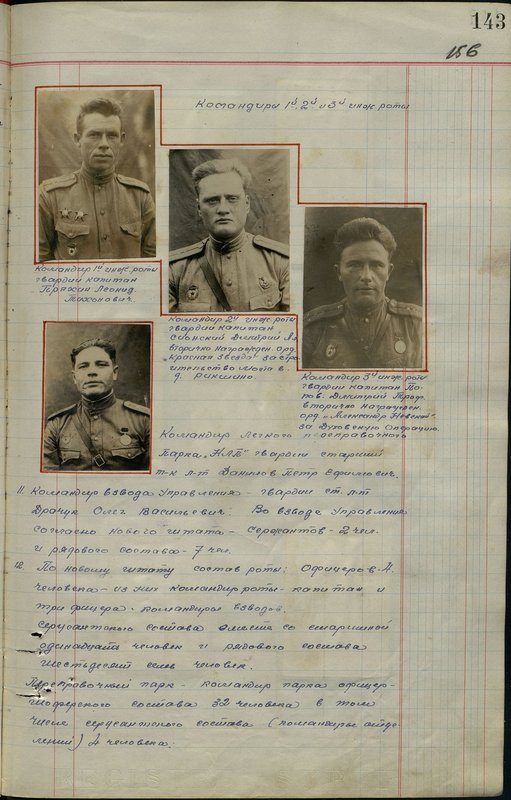 143
156
Командиры 1й, 2й и 3й инж. роты
Командир 1й инж. роты
гвардии капитан
Леонид
Командир 2й инж. роты
гвардии капитан
Дмитрий
вторично награжден. орд.
"Красная Звезда" за стро
ительство моста в
д.
Командир 3й инж. роты
гвардии капитан По
пов. Дмитрий Троф.
вторично награжден.
орд. "Александр Невский"
за Духовскую операцию.
Командир Легкого переправочного
Парка "НЛП" гвардии старший
т-к л-т Данилов Петр Ефимович.
11. Командир взвода Управления - гвардии ст. л-т
Драчук Олег Васильевич. Во взводе Управления
согласно нового штата - Сержантов - 2 чел.
и рядового состава - 7 чел.
12. По новому штату состав роты: Офицеров 4
человека - из них командир роты - капитан и
три офицера - командиры взводов.
Сержантского состава вместе со старшиной
одинадцать человек и рядового состава
шестьдесят семь человек.
Переправочный парк - командир парка офицер -
шоферского состава 32 человека в том
числе сержантского состава (командиры отде-
лений) 4 человека.